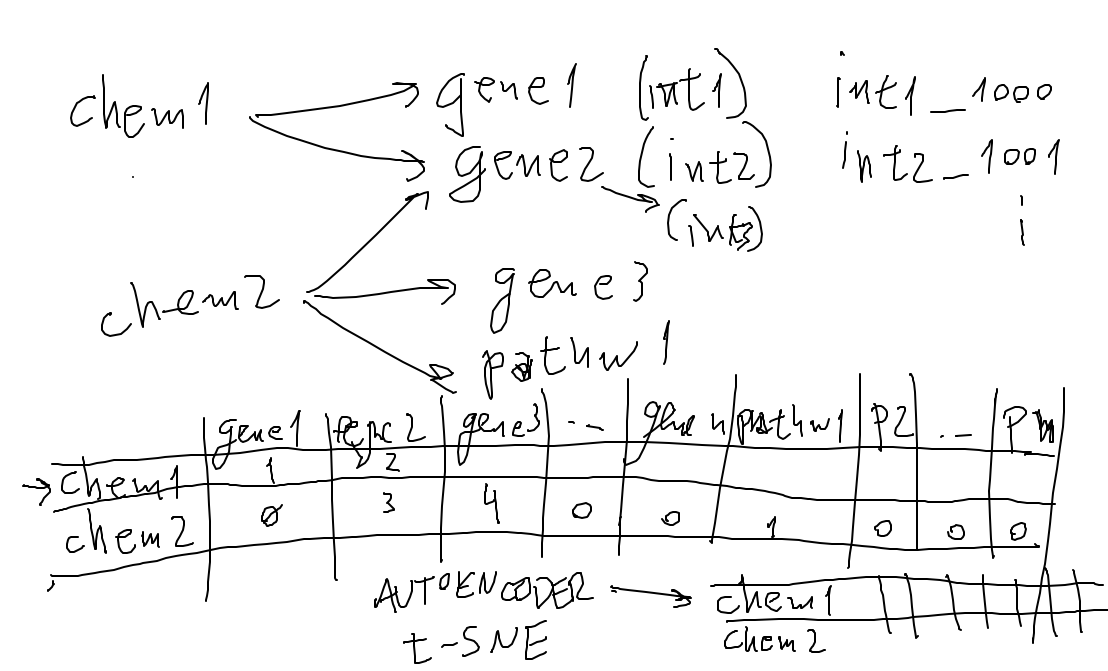 chem1 gene1 (int1) int1_1000
gene2 (int2) int2_1001
(int3)
chem2 gene3
pathw1
gene1 gene2 gene3 ... gene n pathw1 P2 ... Pm
chem1 1 2
chem2 0 3 4 0 0 1 0 0 0
AUTOENCODER chem1
t-SNE chem2